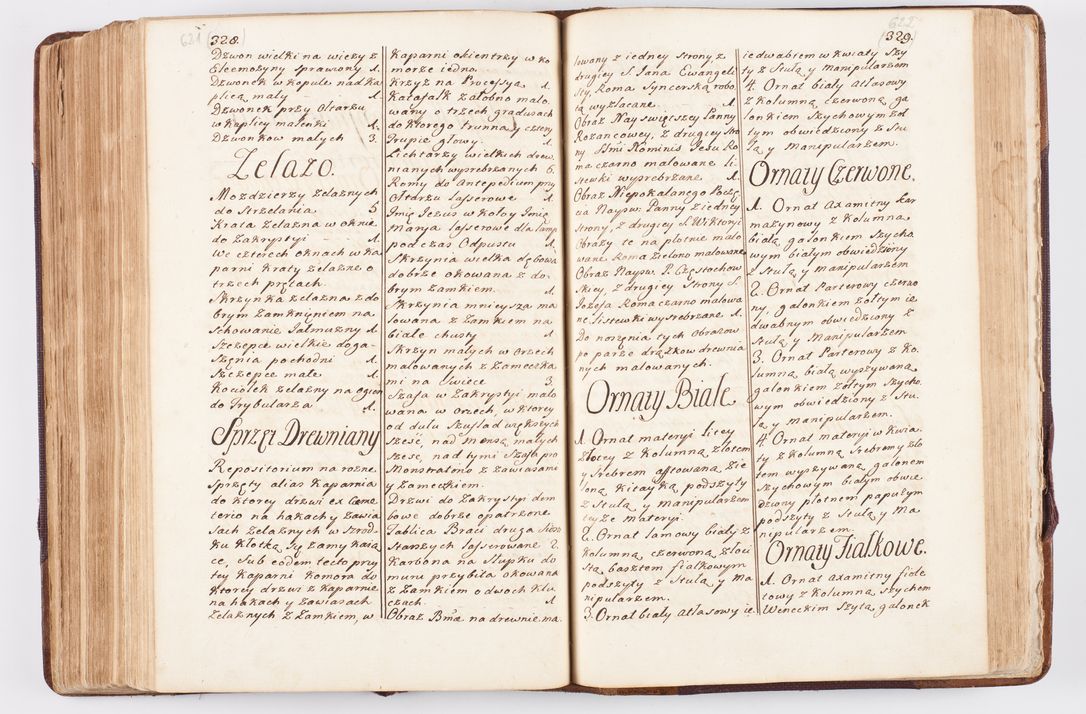 621
328.
Dzwon wielki na wieży z
Eleemozyny sprawiony 1.
Dzwonek w kopule nad ka
plicą mały 1.
Dzwonek przy Ołtarzu
w kaplicy malenki 1.
Dzwonkow małych 3.
Zelazo.
Mozdzierzy zelaznych
do Strzelania 5
Krata zelazna w oknie
do Zakrystyi 1.
We czterech oknach w ka
parni kraty zelazne o
trzech prętach.
Skrzynka zelazna z do
brym Zamknięniem na
schowanie Jałmuzny 1.
Szczepce wielkie do ga-
szęnia pochodni 1.
Szczepce małe 1.
Kociołek zelazny na ogien
do Trybularza 1.
Sprzęt Drewniany
Repositorium na rozne
Sprzęty alias Kaparnia
do ktorey drzwi ex Cæme
terio na hakach y zawia
sach zelaznych w szrod-
ku klotka
ce, Sub eodem tecto przy
tey Kaparni Komora do
ktorey drzwi z kaparnie
na hakach y zawiasach
zelaznych z Zamkiem, w
Kaparni okientrzy w ko
morze iedno.
Krzyż na Processyą 1.
Katafalk załobno malo
wany o trzech gradusach
do ktorego trunna, cztery
trupie głowy. 1.
Lichtarzy wielkich drew
nianych wysrebrzanych 6.
Ramy do Antepedium przy
Ołtarzu lasserowe 1.
Imię Jezus w koło y Imię
Marya lasserowe dla lamp
pod czas Odpustu 1.
Skrzynia wielka dębowa
dobrze okowana z do-
brym Zamkiem. 1.
Skrzynia mnieysza ma
lowana z Zamkiem na
białe chusty 1.
Skrzyn małych w orzech
malowanych z Zameczka
mi na swiece 3.
Szafa w Zakrystyi malo
wana w orzech, w ktorey
od dołu szuflad większych
szesć, nad Mensą małych
szesć, nad tymi szafa pro
Monstratorio z zawiasami
y Zameczkiem.
Drzwi do Zakrystyi dem
bowe dobrze opatrzone.
Tablica Braci druga Sióstr
Starszych lasserowane 2.
Karbona na słupku do
muru przybita okowana
z Zamkiem o dwoch klu
czach. 1.
Obraz Bmæ na drewnie ma-
622
329.
lowany z iedney strony z
drugiey S. Jana Ewangeli
sty, Rama Sycerską robo
tą wyzłacane. 1.
Obraz Nayswięszey Panny
Rozancowey, z drugiey stro
ny Ssmi Nominis Jesu Ra
ma czarno malowane li
stewki wysrebrzane 1.
Obraz Niepokalanego Poczę
cia Nayśw: Panny z iedney
strony, z drugiey S. Wiktoryi
Obrazy te na płotnie malo
wane Rama zielono malowane
Obraz Nayśw. P. Częstochow
skiey, z drugiey strony S.
Jozefa Rama czarno malowa
ne, listewki wysrebrzane 1.
Do noszęnia tych Obrazow
po parze drązkow drewnia
nych malowanych.
Ornaty Białe
1. Ornat materyi litey
złotey z Kolumną złotem
y srebrem aftowaną zie
loną kitayką podszyty
z Stułą y manipularzem
teyze materyi.
2. Ornat lamowy biały z
kolumną czerwoną złoci
stą basztem fialkowym
podszyty z Stułą y ma
nipularzem.
3. Ornat biały atłasowy ie
iedwabiem w kwiaty szy
ty z Stułą y manipularzem
4. Ornat biały atłasowy
z Kolumną czerwoną ga
lonkiem szychowym żoł
tym obwiedziony z Stu
łą y manipularzem.
Ornaty Czerwone.
1. Ornat axamitny kar
mazynowy z kolumną
białą galonkiem szycho
wym białym obwiedziony
z Stułą y manipularzem
2. Ornat Parterowy czerwo
ny, galonkiem żołtym ie
dwabnym obwiedziony z
Stułą y manipularzem
3. Ornat Parterowy z ko
lumną białą wyszywaną
galonkiem żołtym szycho
wym obwiedziony z Stu
łą y manipularzem.
4. Ornat materyi w kwia
ty z Kolumną srebrem y zło
tem wyszywaną galonem
szychowym białym obwie
dziony płotnem papużym
podszyty z Stułą y Ma
nipularzem.
Ornaty Fialkowe.
1. Ornat axamitny fiole
towy z kolumną szychem
Weneckim szytą, galonek